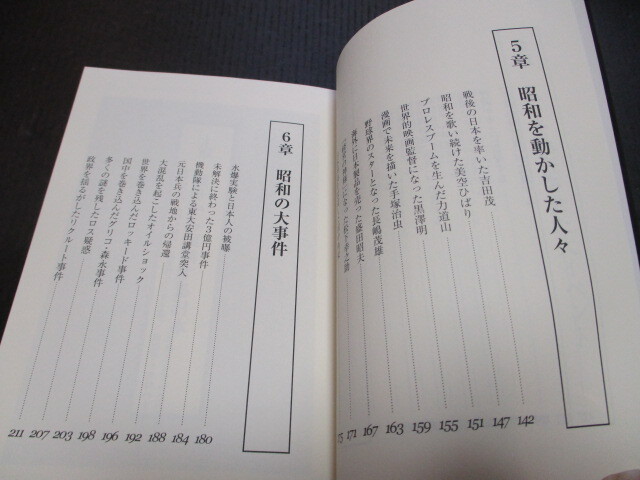 5章 昭和を動かした人々
戦後の日本を率いた吉田茂 142
昭和を歌い続けた美空ひばり 147
プロレスブームを生んだ力道山 151
世界的映画監督になった黒澤明 155
漫画で未来を描いた手塚治虫 159
野球界のスターとなった長嶋茂雄 163
海外に日本製品を売った盛田昭夫 167
171
6章 昭和の大事件
水爆実験と日本人の被曝 180
未解決に終わった3億円事件 184
機動隊による東大安田講堂突入 188
元日本兵の戦地からの帰還 192
大混乱を起こしたオイルショック 196
世界を巻き込んだロッキード事件 198
国中を巻き込んだグリコ・森永事件 203
多くの謎を残したロス疑惑 207
政界を揺るがしたリクルート事件 211